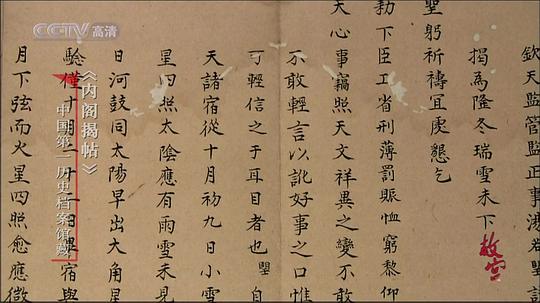 CCTV 高清
欽天監管監正事湯若望謹
揭為隆冬瑞雪未下
聖躬祈禱宜處懇乞
勑下臣工省刑薄罰賑恤窮黎仰
天心事竊照天文祥異之變不敢
不敢輕言以訛好事之口惟
可輕信之于耳目者也
聖自
天諸宿從十月初九日小雪
星四照太陰應有雨雪未見
日河鼓同太陽早出大角星
驗僅十月二十二日畢宿與
月下弦而火星四照愈應微
《内阁揭帖》
中国第一历史档案馆藏
故宫